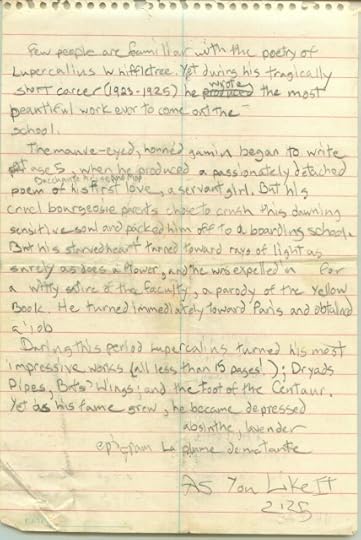 Few people are familiar with the poetry of
Lupercalius Whiffletree. Yet during his tragically
short career (1903-1925) he produced wrote the most
beautiful work ever to come out the
school.
The mauve-eyed, horned gamin began to write
at age 5, when he produced a passionately detached
poem of his first love, a servant girl. But his
cruel bourgeosie parents chose to crush this dawning
sensitive soul and packed him off to a boarding school.
But his starved heart turned toward rays of light as
surely as does a flower, and he was expelled in for
a witty satire of the faculty, a parody of the Yellow
Book. He turned immediately toward Paris and obtained
a job
During this period Lupercalius turned his most
impressive works (all less than 15 pages!): Dryads
Pipes, Bats' Wings! and the Foot of the Centaur.
Yet as his fame grew, he became depressed
absinthe, lavender
epigram La plume de ma tante
As You Like It
2:25